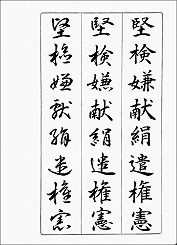 堅検嫌献絹遣権憲
堅検嫌献絹遣権憲
堅検嫌献絹遣権憲